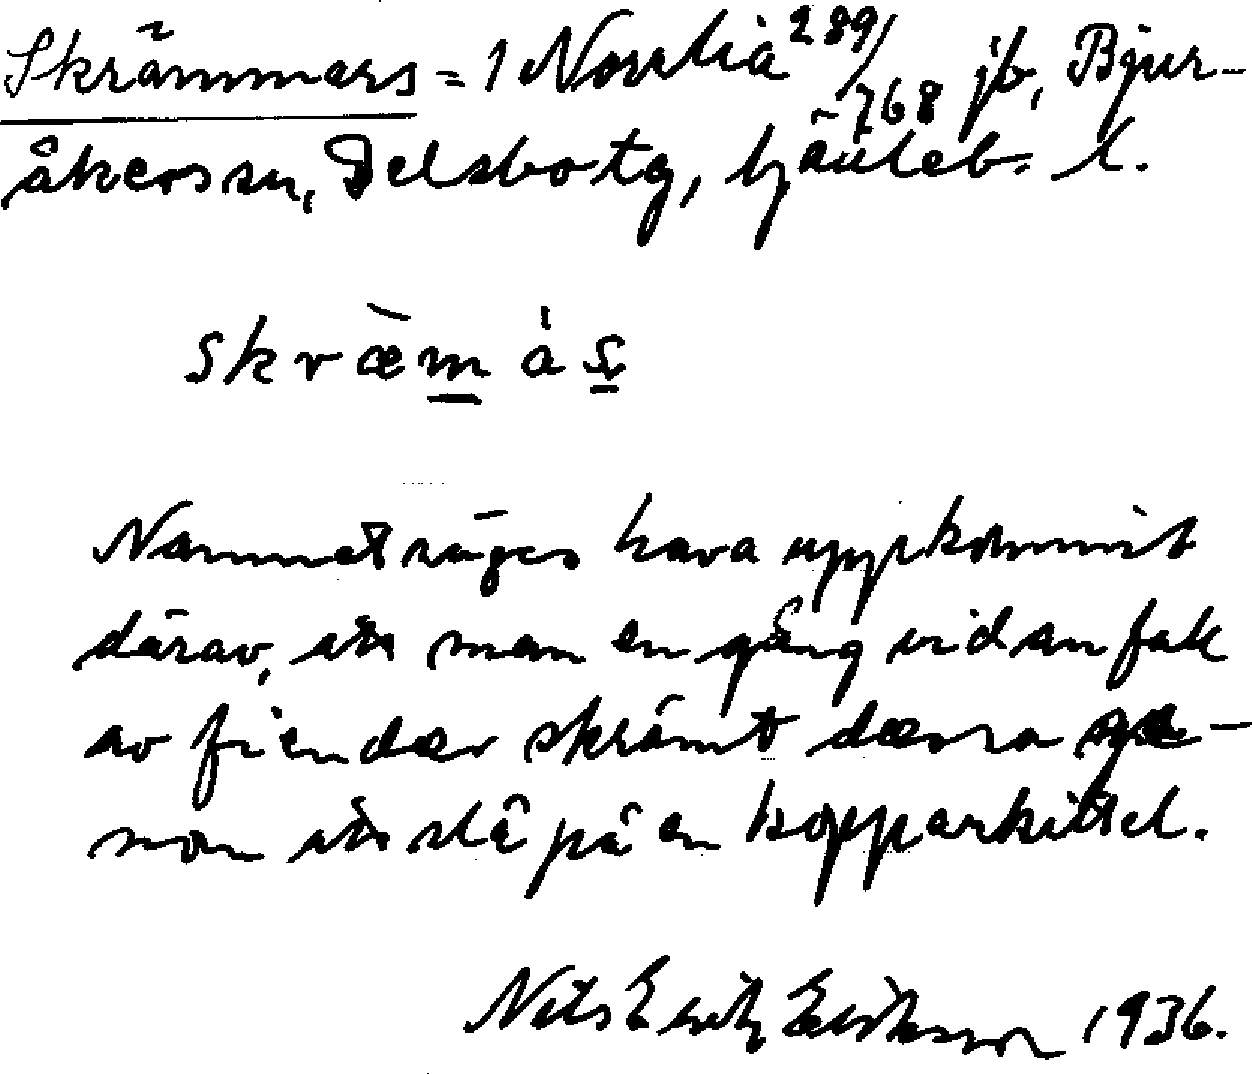 Skrämmars = 1 Norrliå 289/768 jb, Bjur-
åkers sn, Delsbo tg, Gävleb. l.
skræ̀m às
Namnet säges hava uppkommit
därav, att man en gång vid anfall
av fiender skrämt dessa ge-
nom att slå på en kopparkittel.
Nils Erik Eriksson 1936.